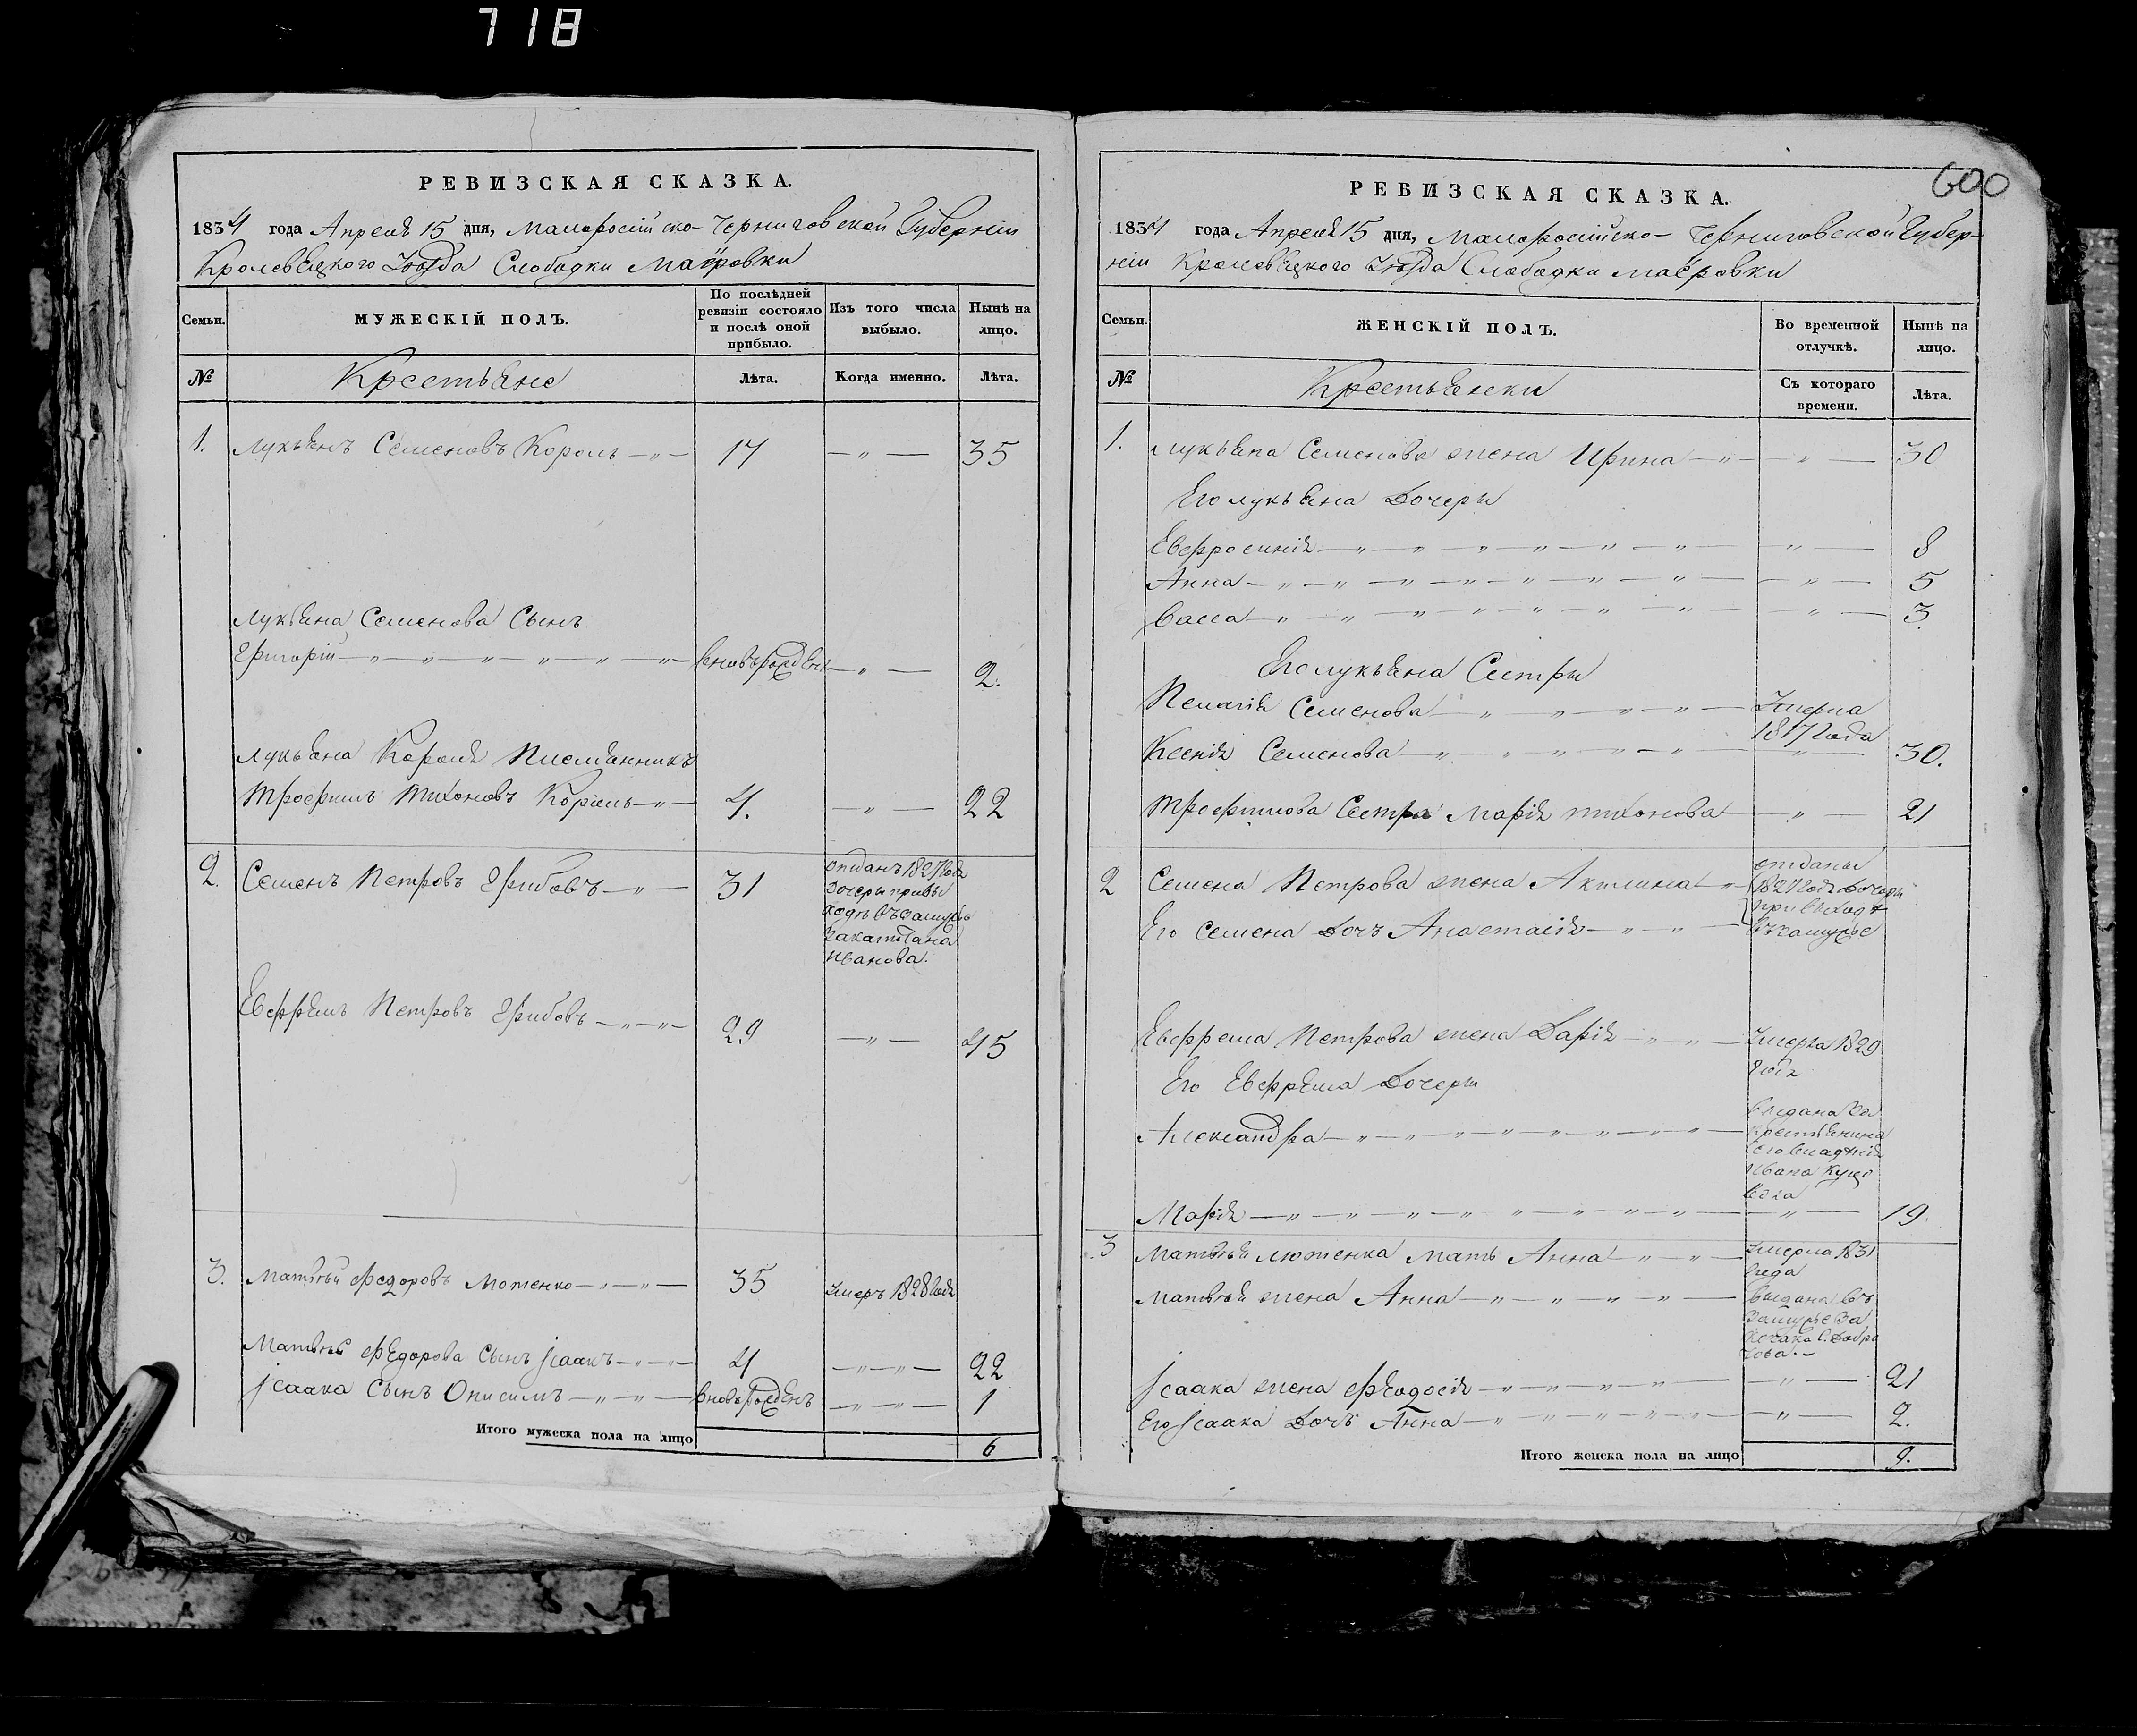 718
РЕВИЗСКАЯ СКАЗКА.
1834 года Апреля 15 дня, Малоросійско-Черниговской Губерніи
Кролевецкого Уѣзда Слободки Маёровки
Семьи.
МУЖЕСКІЙ ПОЛЪ.
По послѣдней ревизіи состояло и послѣ оной прибыло.
Изъ того числа выбыло.
Нынѣ на лицо.
№
Крестьяне
Лѣта.
Когда именно.
Лѣта.
1. Лукьянъ Семеновъ Король — 〃 — 17 — 〃 — 35
Лукьяна Семенова Сынъ
Григорій — 〃 — вновьрожденъ — 〃 — 2.
Лукьяна Короля Племянникъ
Трофимъ Тихоновъ Король — 〃 — 4. — 〃 — 22
2. Семенъ Петровъ Грибовъ — 〃 — 31
отданъ 1827 года
дочеры привы
ходѣ въ замужъ
Иванова.
Евфремъ Петровъ Грибовъ — 〃 — 29 — 〃 — 45
3. Матвѣй Федоровъ Лютенко — 〃 — 35 умеръ 1828 года
Матвѣя Федорова Сынъ Јсаакъ — 〃 — 4 — 〃 — 22
Јсаака Сынъ Онисимъ — 〃 — вновьрожденъ — 〃 — 1
Итого мужеска пола на лицо 6
600
РЕВИЗСКАЯ СКАЗКА.
1834 года Апреля 15 дня, Малоросійско- Черниговской Губер-
ніи Кролевецкого Уѣзда Слободки Маёровки
Семьи.
ЖЕНСКІЙ ПОЛЪ.
Во временной отлучкѣ.
Нынѣ на лицо.
№
Крестьянки
Съ котораго времени.
Лѣта.
1. Лукьяна Семенова жена Ирина — 〃 — 30
Его лукьяна Дочеры
Евфросинія — 〃 — 8
Анна — 〃 — 5
Васса — 〃 — 3.
Его лукьяна Сестры
Пелагія Семенова — 〃 — Умерла
1817 года
Ксенія Семенова — 〃 — 30.
Трофимова Сестра Марія Тихонова — 〃 — 21
2 Семена Петрова жена Акилина — 〃 — отданы
1827 года дочеры
при выходѣ
Его Семена Дочь Анастасія — 〃 — въ замужъе
Евфрема Петрова жена Дарія — 〃 — Умерла 1829
года
Его Евфрема Дочеры
Александра — 〃 — выдана за
крестьянина
его владѣнія
Ивана
Марія — 〃 — 19.
3 Матвѣя Лютенка мать Анна — 〃 — Умерла 1831
года
Матвѣя жена Анна — 〃 — выдана въ
Замужье за
Јсаака жена Феодосія — 〃 — 21
Его Јсаака Дочь Анна — 〃 — 2.
Итого женска пола на лицо 9.